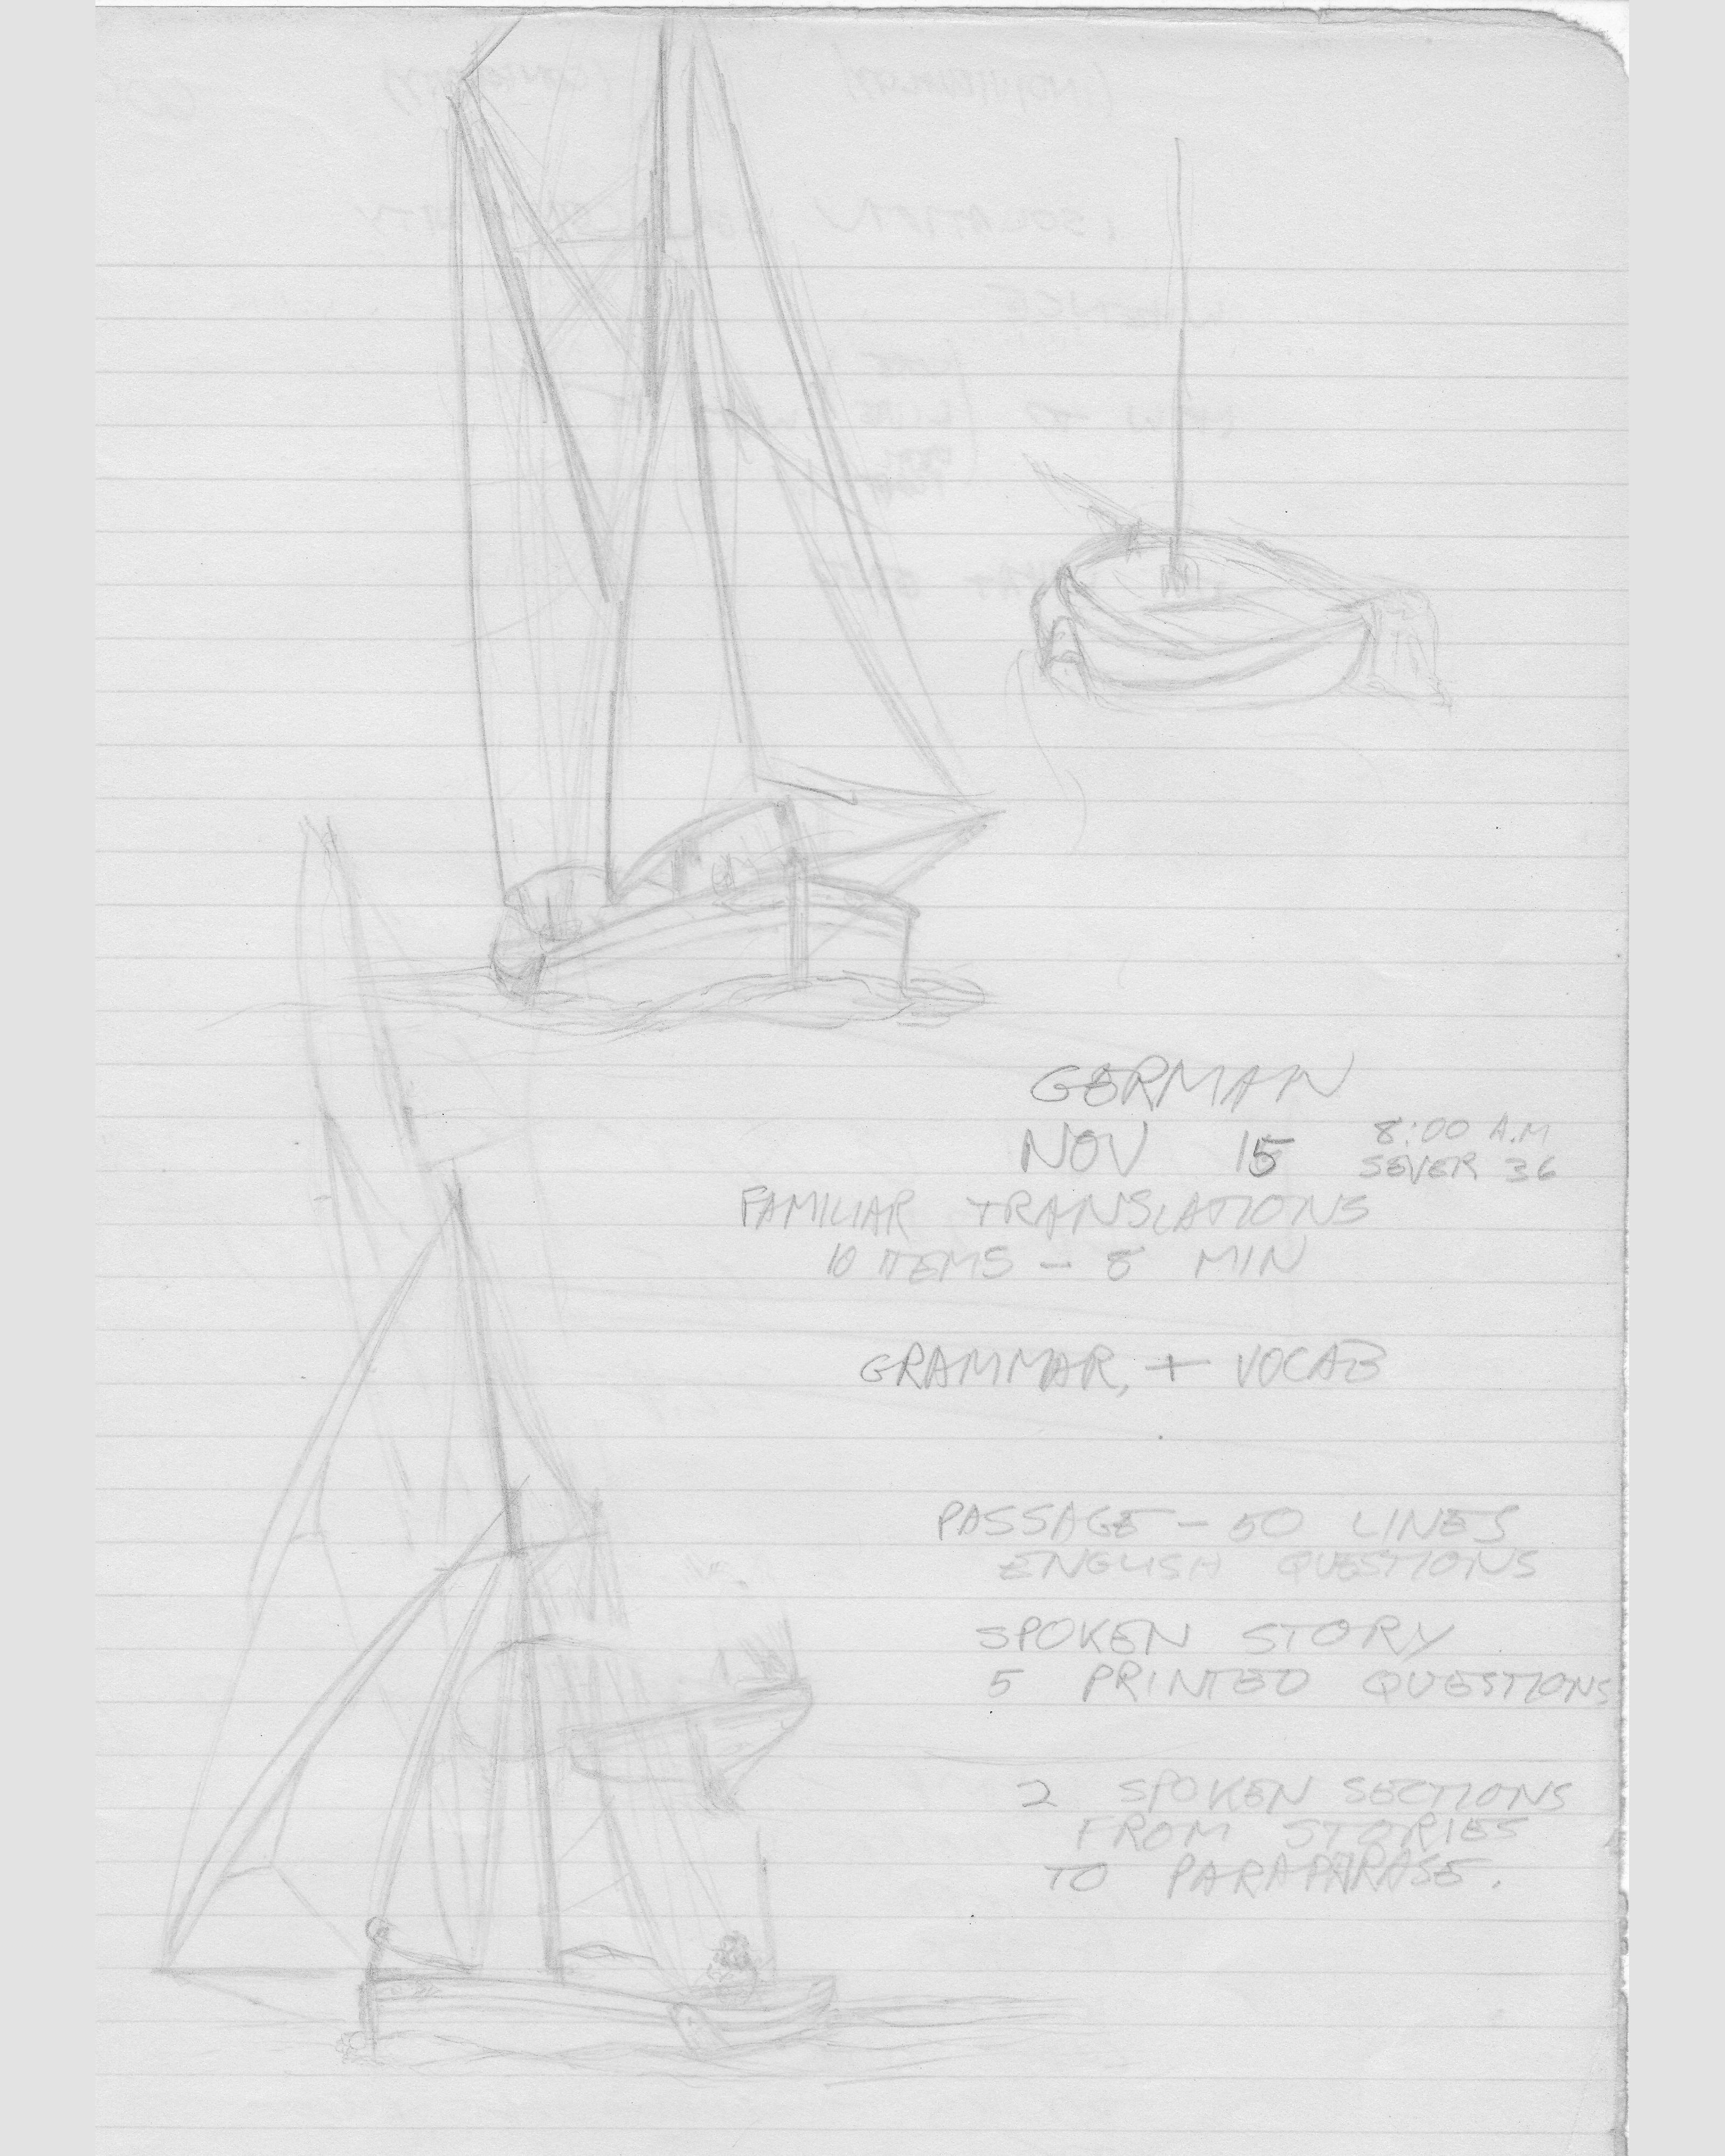 GERMAN
NOV 15 8:00 A.M
SEVER 36
FAMILIAR TRANSLATIONS
10 ITEMS - 8 MIN
GRAMMAR, + VOCAB
PASSAGE - 50 LINES
ENGLISH QUESTIONS
SPOKEN STORY
5 PRINTED QUESTIONS
2 SPOKEN SECTIONS
FROM STORIES
TO PARAPHRASE.